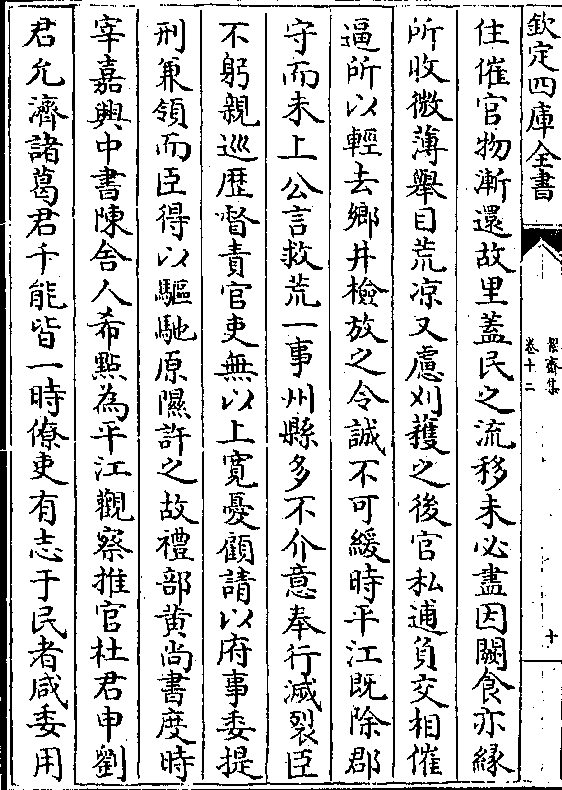 欽定四庫全書
絜齋集
卷十二
十
住催官物漸還故里蓋民之流移未必盡因闕食亦緣
所收微薄舉目荒凉又慮刈穫之後官私逋負交相催
逼所以輕去鄉井檢放之令誠不可緩時平江既除郡
守而未上公言救荒一事州縣多不介意奉行滅裂臣
不躬親巡歴督責官吏無以上寛憂顧請以府事委提
刑兼領而臣得以驅馳原隰許之故禮部黄尚書度時
宰嘉興中書陳舍人希㸃為平江觀察推官杜君申劉
君允濟諸葛君千能皆一時僚吏有志于民者咸委用